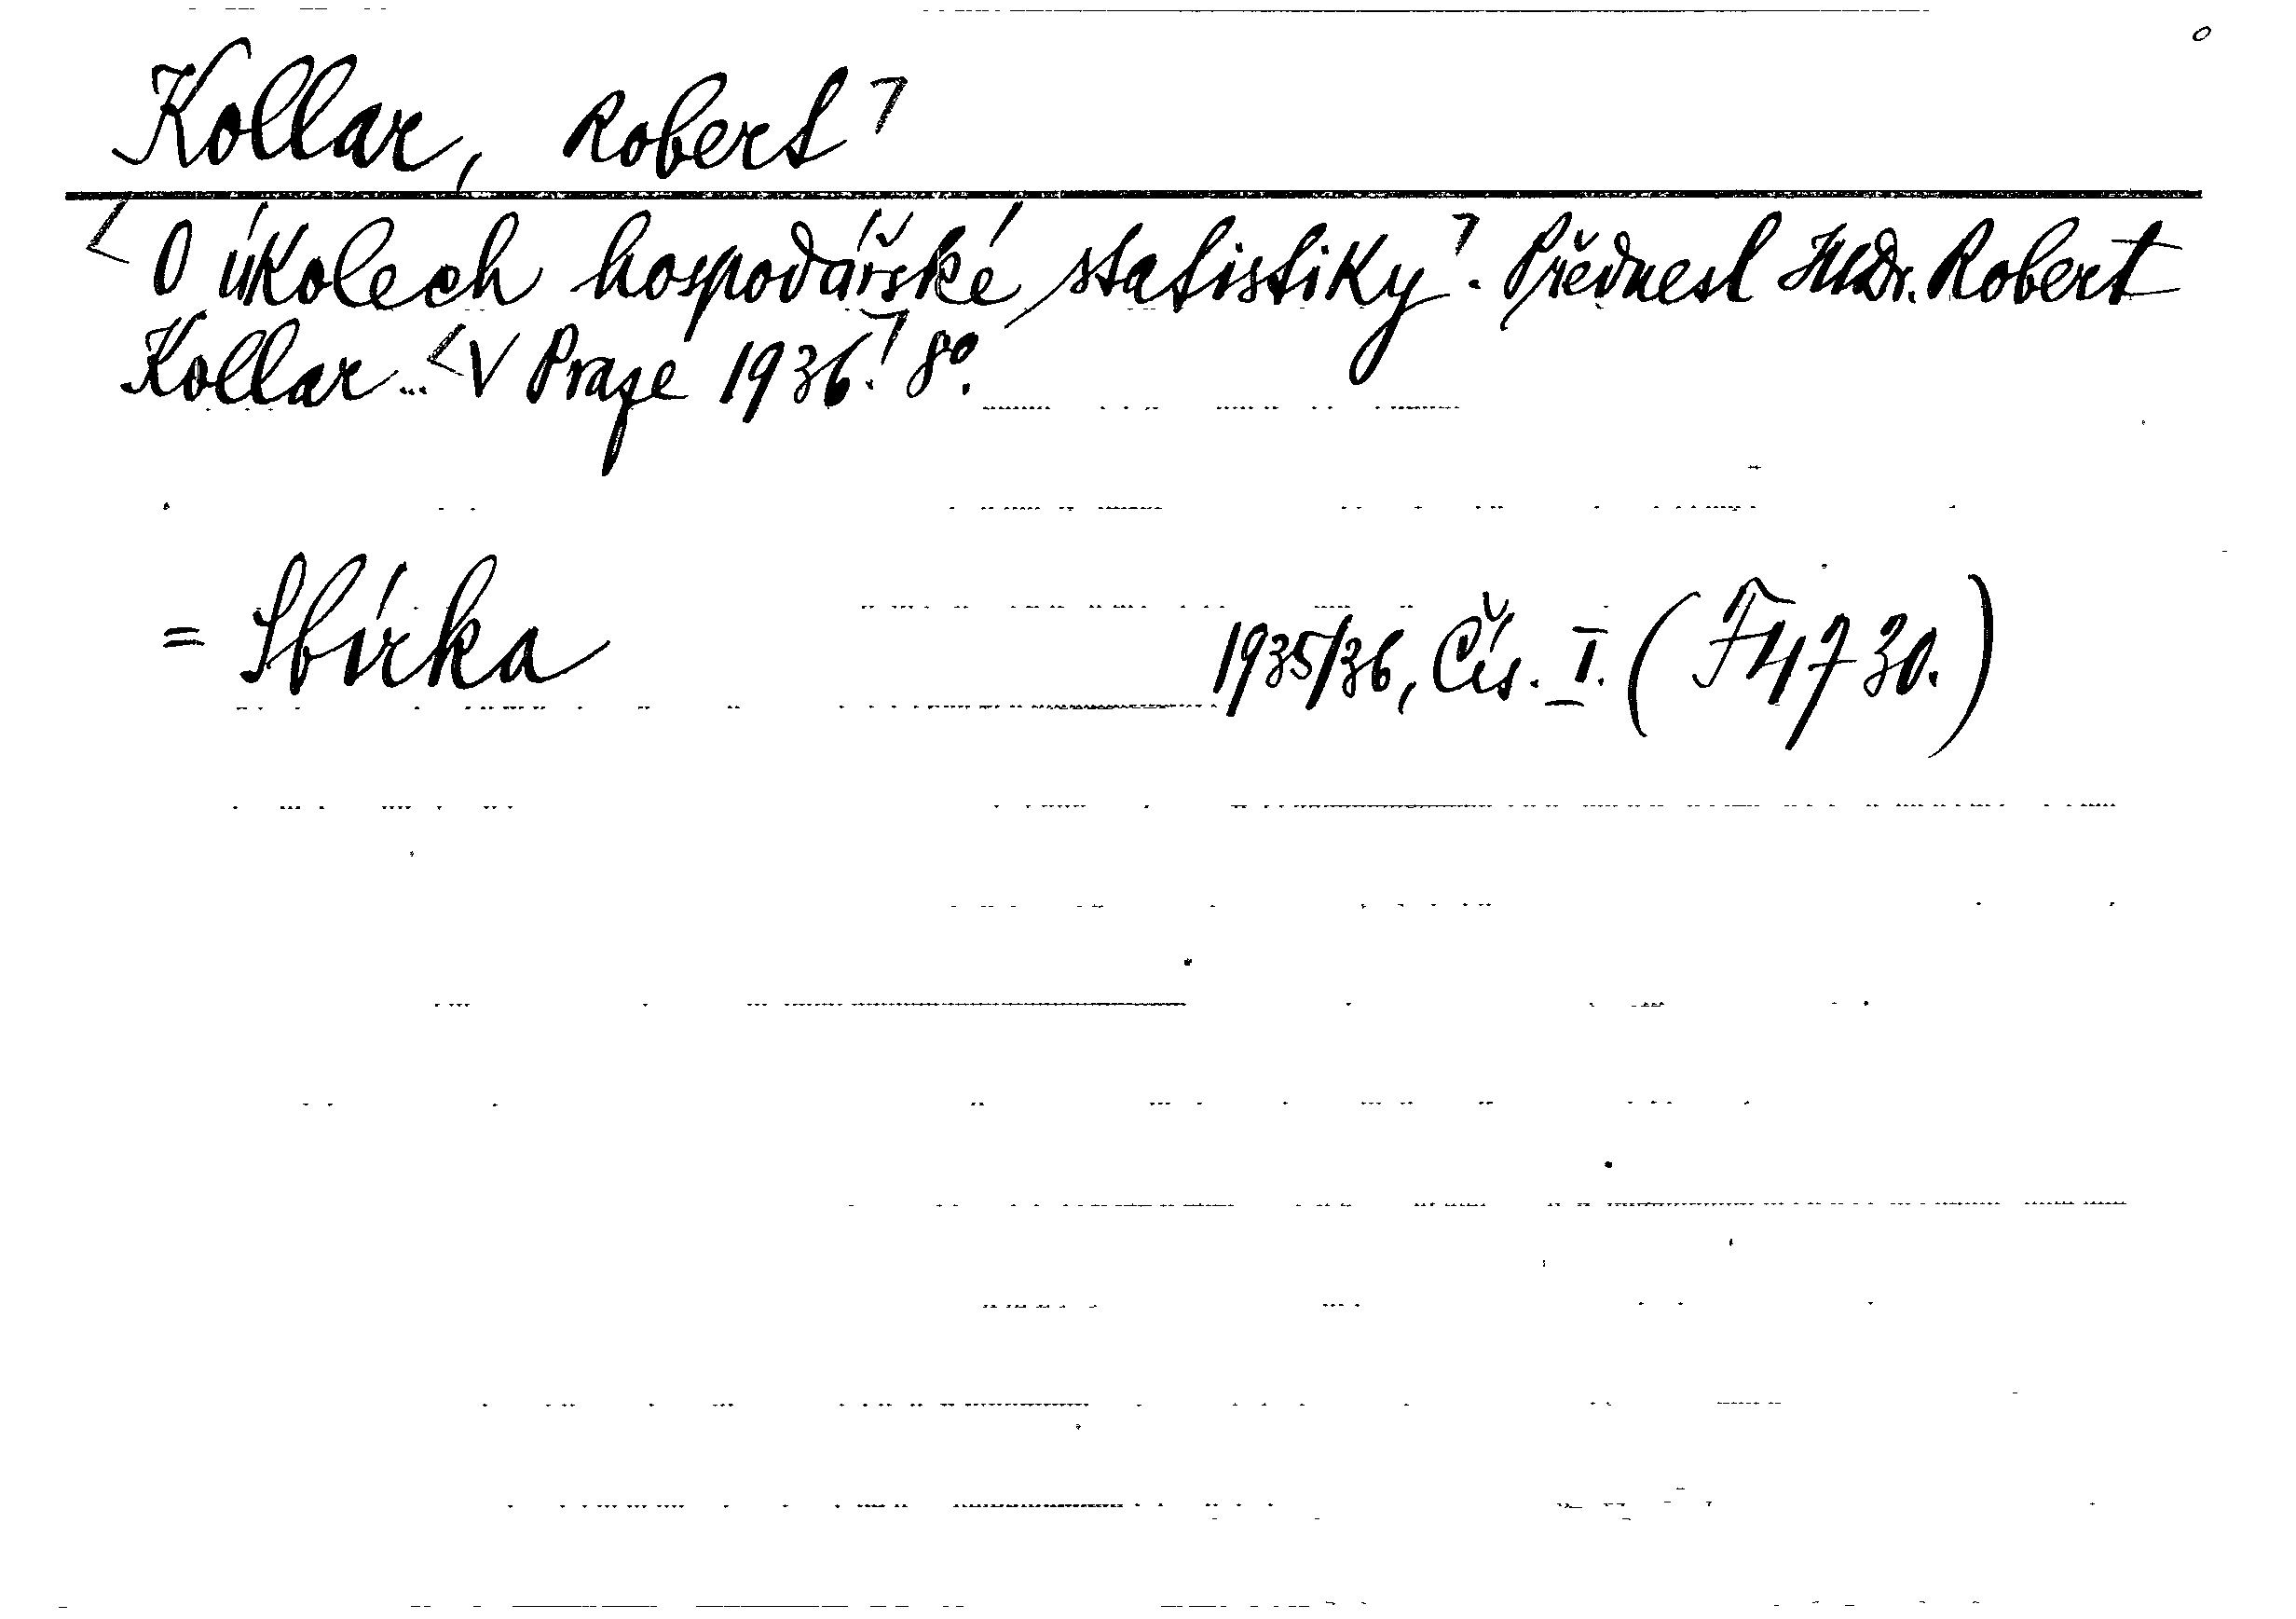 Kollar, Robert
O úkolech hospodářské statistiky. Přednesl JUDr. Robert
Kollar... V Praze 1936. 8°.
= Sbírka 1935/36, Čís. I. (F 4730.)